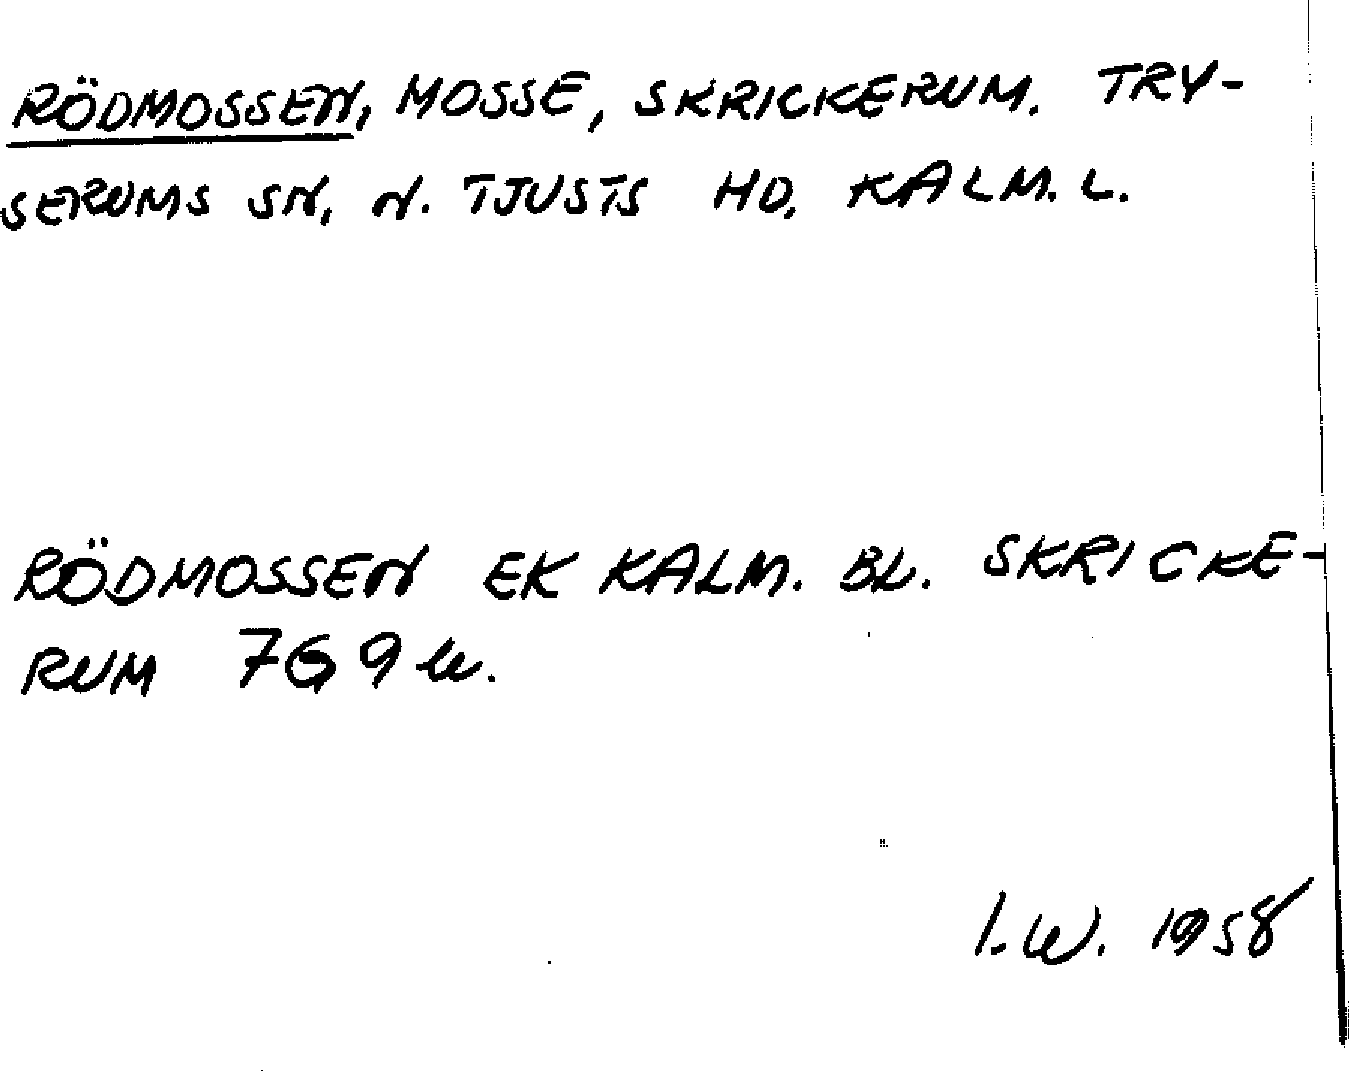 RÖDMOSSEN, MOSSE, SKRICKERUM. TRY-
SERUMS SN, N. TJUSTS HD, KALM. L.
RÖDMOSSEN EK KALM. BL. SKRICKE-
RUM 769
I.W. 1958